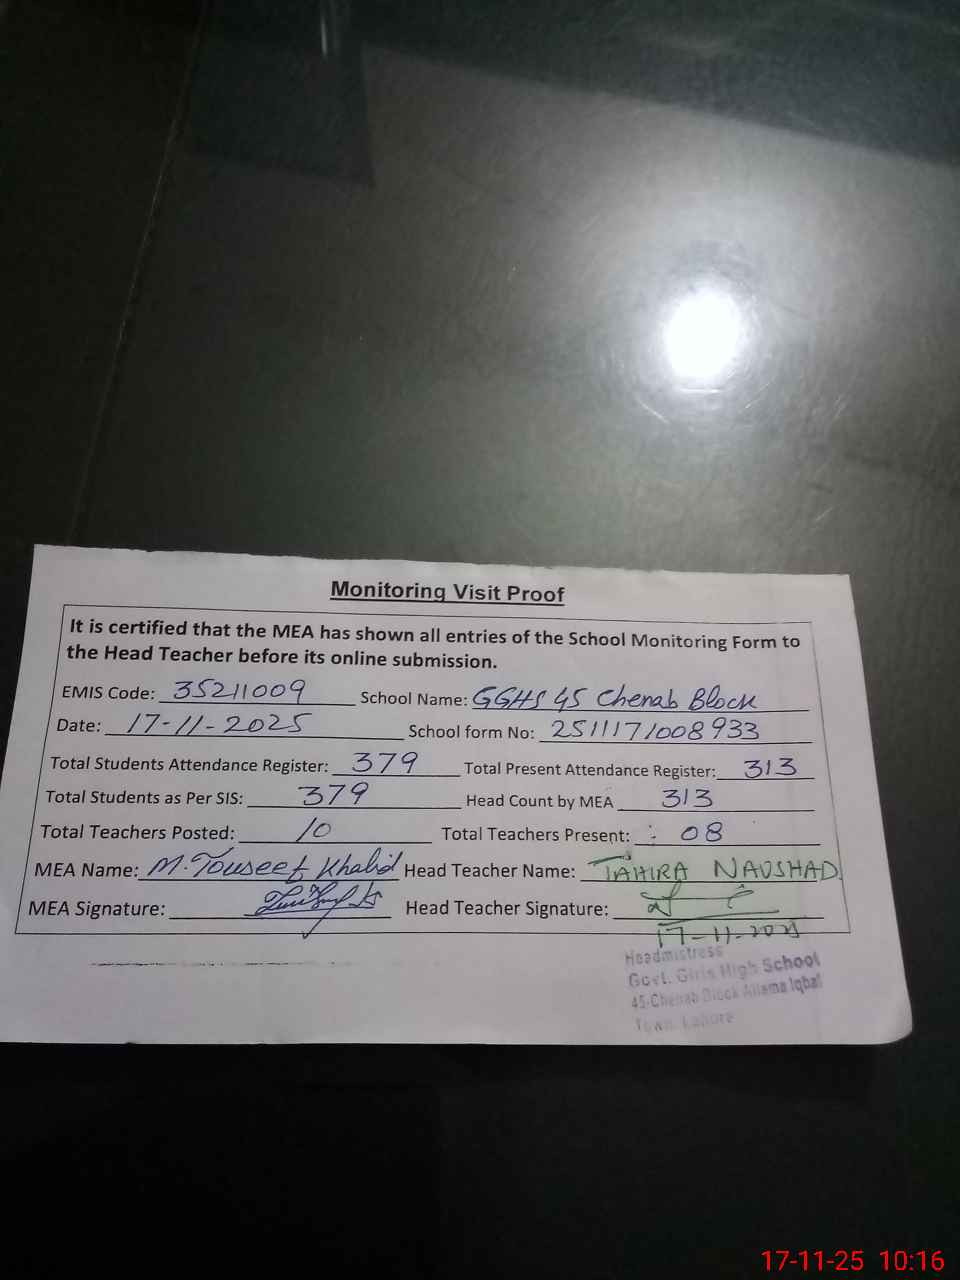 Monitoring Visit Proof
It is certified that the MEA has shown all entries of the School Monitoring Form to
the Head Teacher before its online submission.
EMIS Code: 35211009 School Name: GGHS 45 Chenab Block
Date: 17-11-2025 School form No: 2511171008933
Total Students Attendance Register: 379 Total Present Attendance Register: 313
Total Students as Per SIS: 379 Head Count by MEA 313
Total Teachers Posted: 10 Total Teachers Present: 08
MEA Name: M. Touseef Khalid Head Teacher Name: TAHIRA NAUSHAD
MEA Signature: Head Teacher Signature:
17-11-2025
Headmistress
Govt. Girls High School
45-Chenab Block Allama Iqbal
Town, Lahore
17-11-25 10:16